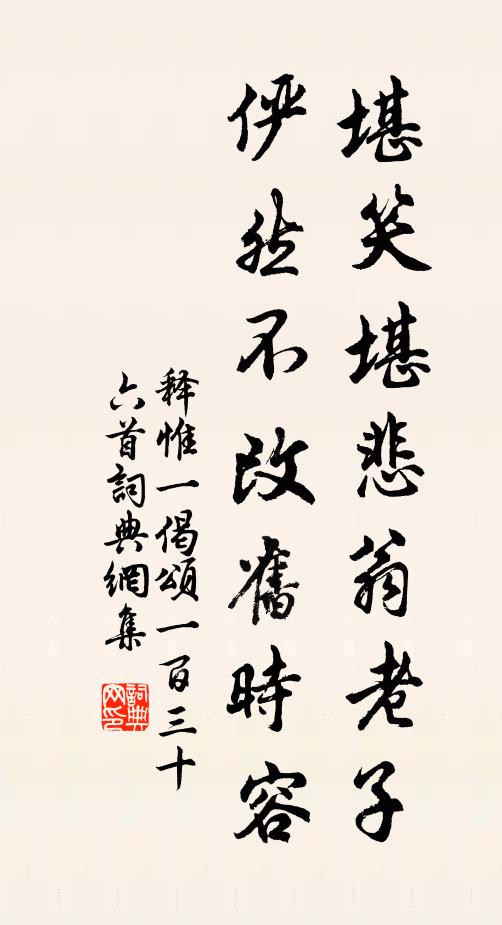 堪笑堪悲翁老子
俨然不改舊時容
释惟一偈頌一百三十
六首詞典網集
詞典网印